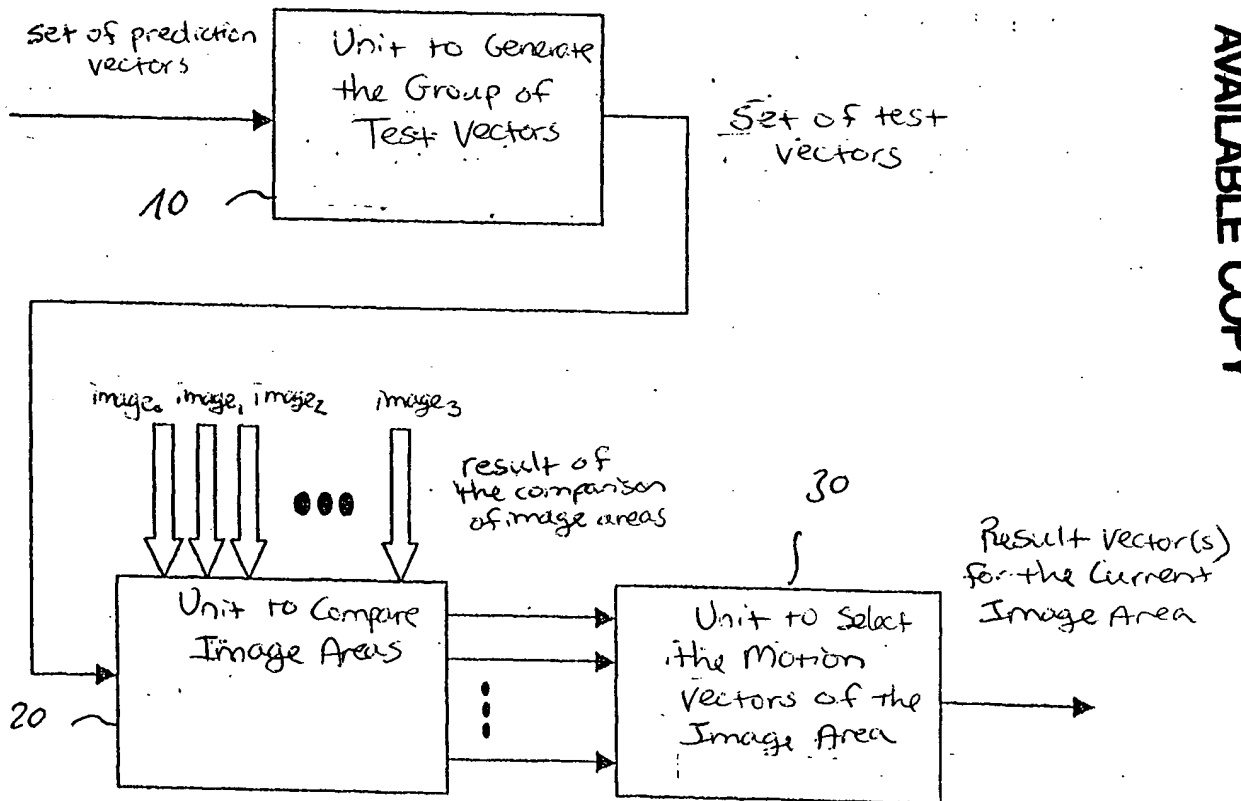 set of prediction
vectors
Unit to Generate
the Group of
Test Vectors
Set of test
vectors
10
AVAILABLE COPY
image₀ image₁ image₂ image₃
result of
the comparison
of image areas
30
Result vector(s)
for the Current
Image Area
Unit to Compare
Image Areas
Unit to Select
the Motion
Vectors of the
Image Area
20